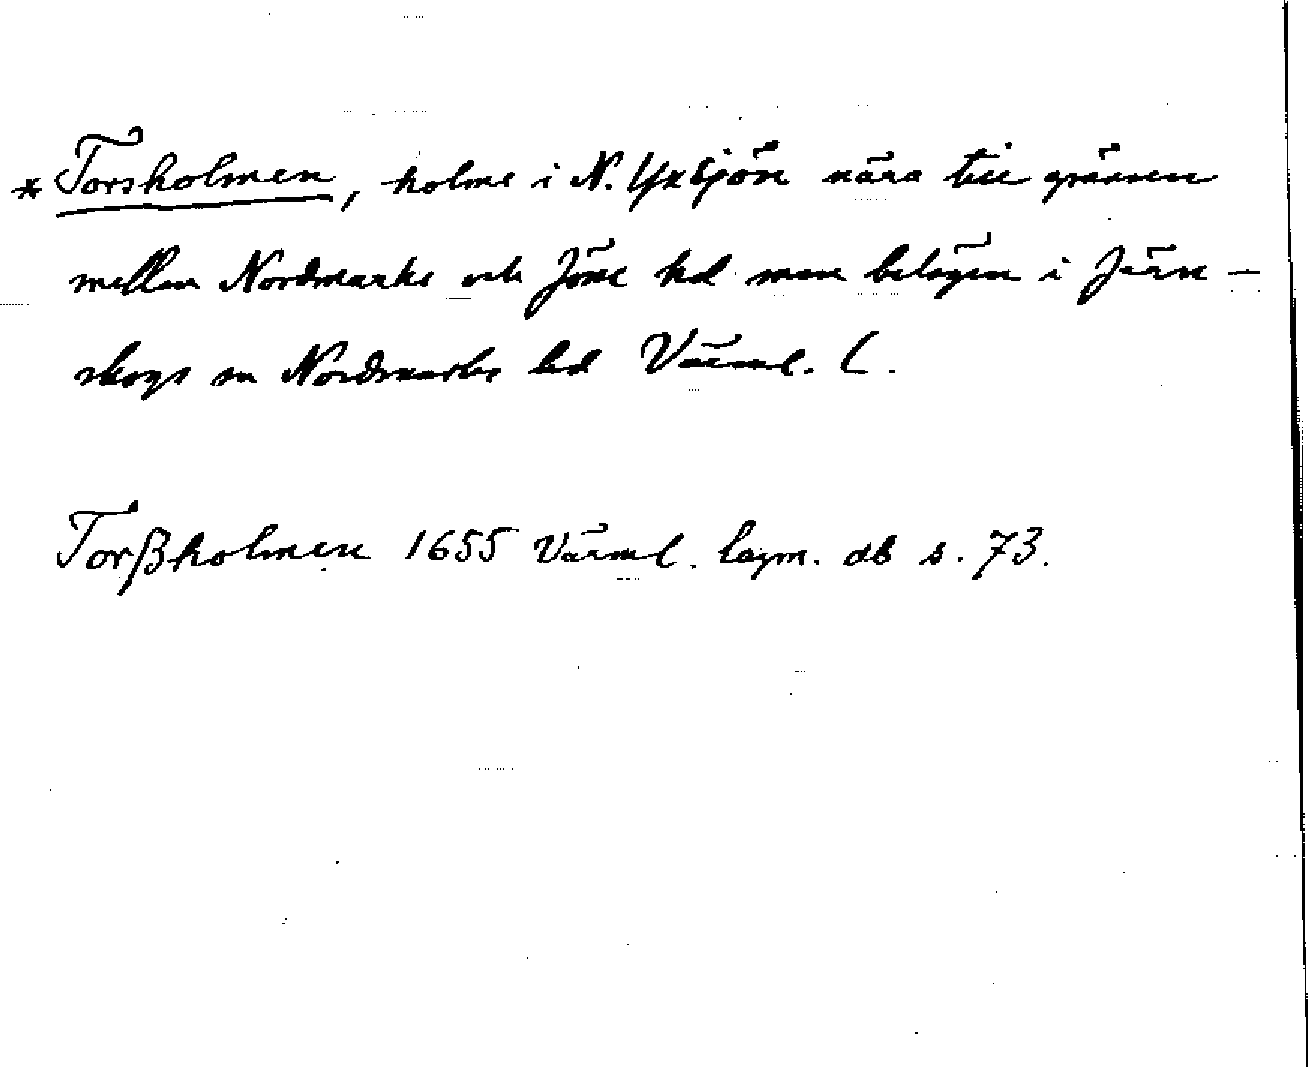 * Torsholmen, holme i N. Yxsjön nära till gränsen
mellan Nordmarks och Jösse hd men belägen i Järn-
skogs sn Nordmarks hd Värml. l.
Torßholmen 1655 Värml. lagm. db s. 73.